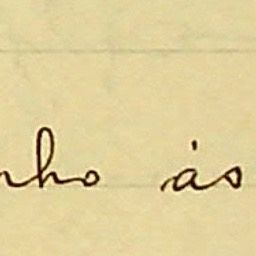 nho às